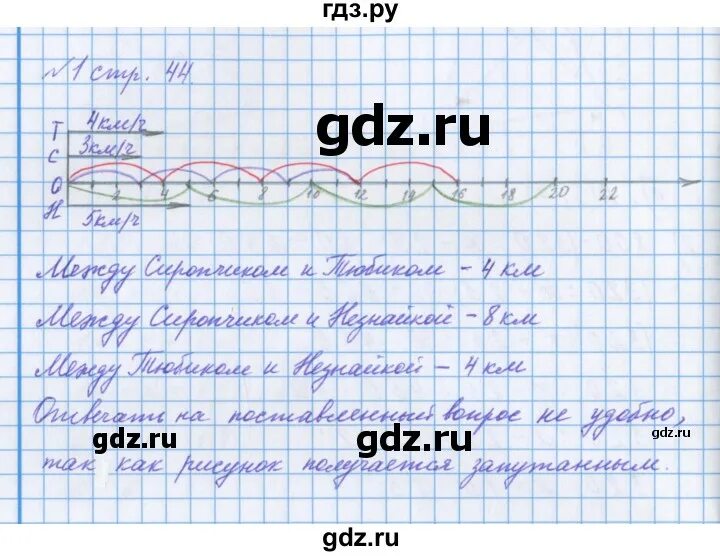 гдз.ру
№1 стр. 44
Т 4км/ч
gdz.ru
С 3км/ч
О 2 4 6 8 10 12 14 16 18 20 22
Н 5км/ч
Между Сиропчиком и Тюбиком – 4 км
Между Сиропчиком и Незнайкой – 8 км
Между Тюбиком и Незнайкой – 4 км
Отвечать на поставленный вопрос не удобно,
gdz.ru gdz.ru gdz.ru
так как рисунок получается запутанным.
gdz.ru